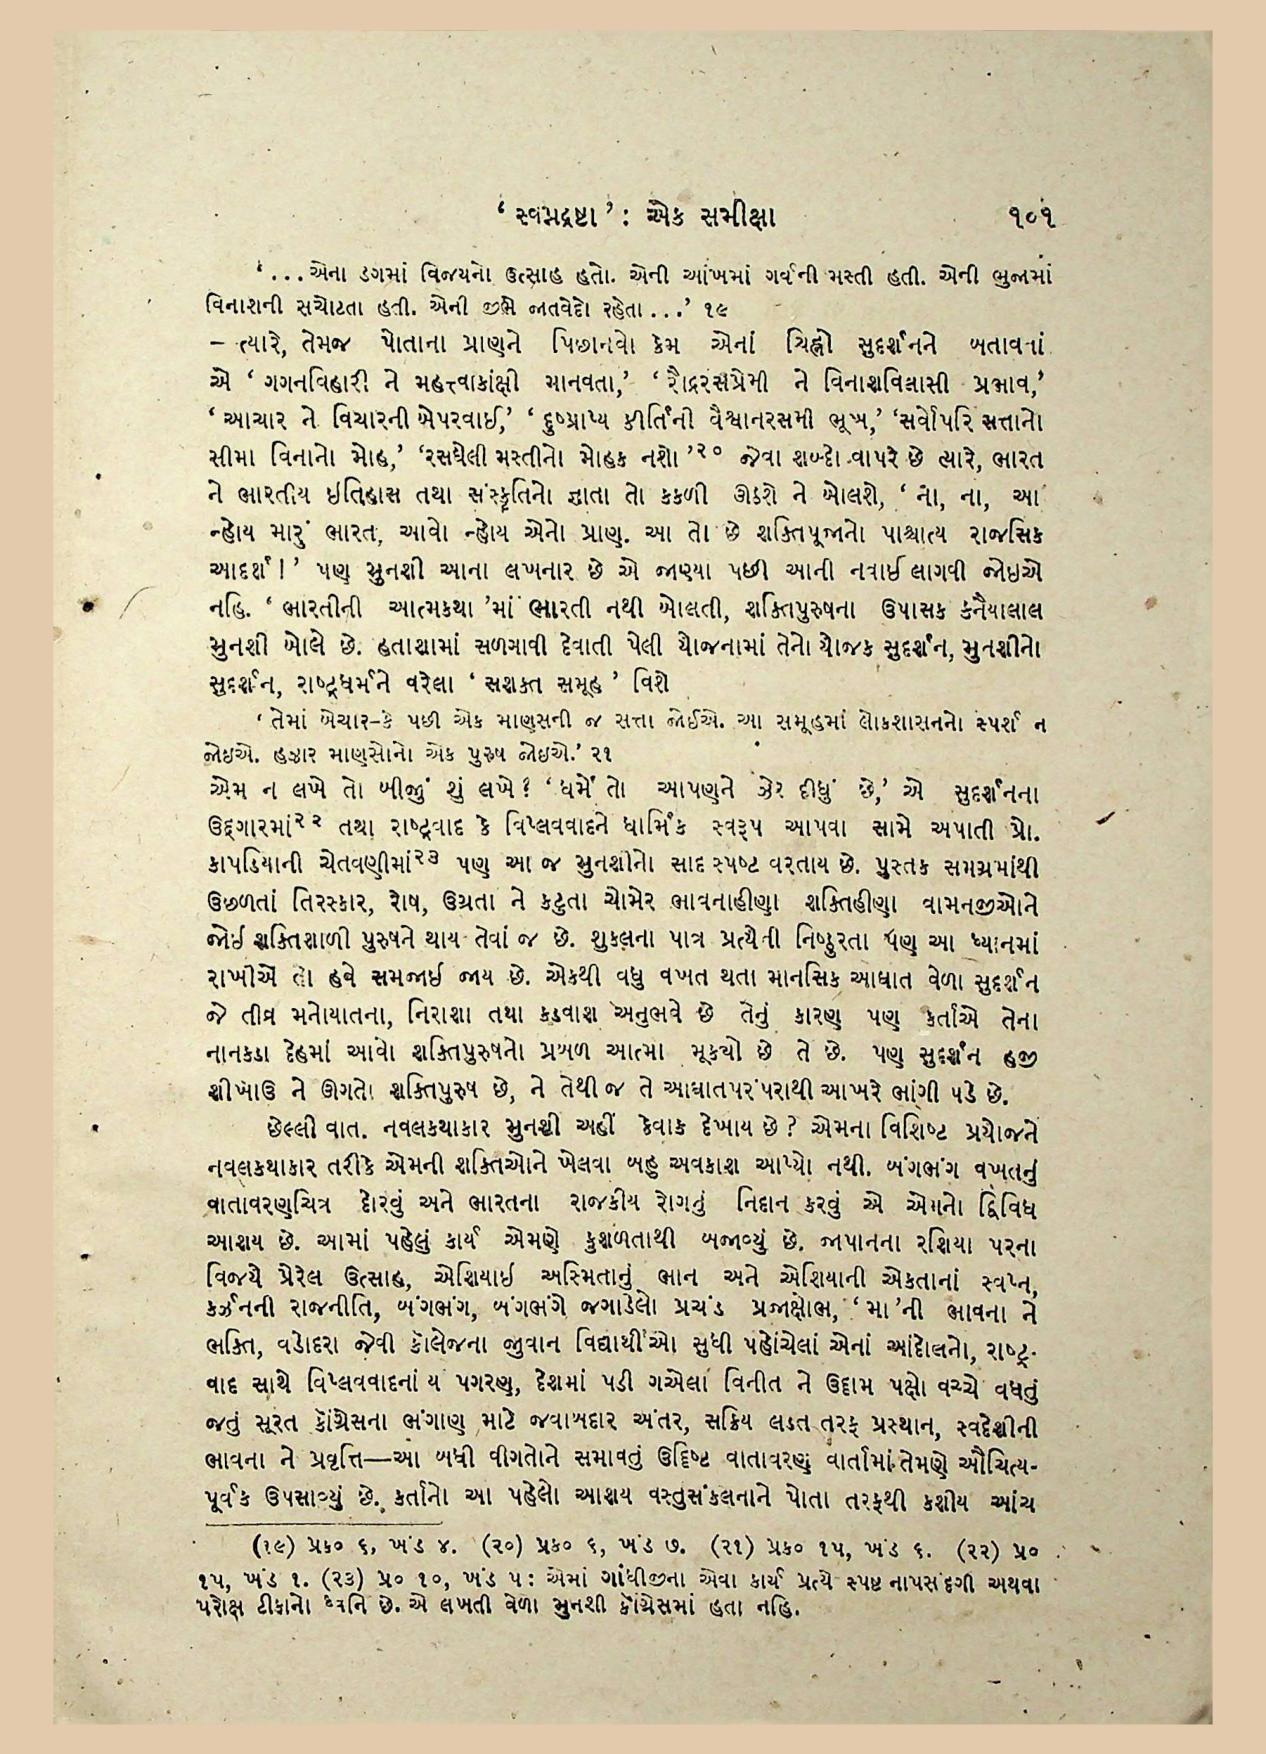 ‘ સ્વપ્નદ્રષ્ટા ’ : એક સમીક્ષા ૧૦૧
‘...એના ડગમાં વિજયનો ઉત્સાહ હતો. એની આંખમાં ગર્વની મસ્તી હતી. એની ભુજામાં
વિનાશની સચોટતા હતી. એની જીભે જાતવેદો રહેતા...’ ૧૯
– ત્યારે, તેમજ પોતાના પ્રાણને પિછાનવો કેમ એનાં ચિહ્નો સુદર્શનને બતાવતાં
એ ‘ ગગનવિહારી ને મહત્ત્વાકાંક્ષી માનવતા,’ ‘ રૌદ્રરસપ્રેમી ને વિનાશવિલાસી પ્રભાવ,’
‘ આચાર ને વિચારની બેપરવાઈ,’ ‘ દુષ્પ્રાપ્ય કીર્તિની વૈશ્વાનરસમી ભૂખ,’ ‘સર્વોપરિ સત્તાનો
સીમા વિનાનો મોહ,’ ‘રસઘેલી મસ્તીનો મોહક નશો ’૨૦ જેવા શબ્દો વાપરે છે ત્યારે, ભારત
ને ભારતીય ઇતિહાસ તથા સંસ્કૃતિનો જ્ઞાતા તો કકળી ઊઠશે ને બોલશે, ‘ ના, ના, આ
ન્હોય મારું ભારત, આવો ન્હોય એનો પ્રાણ. આ તો છે શક્તિપૂજાનો પાશ્ચાત્ય રાજસિક
આદર્શ !’ પણ મુનશી આના લખનાર છે એ જાણ્યા પછી આની નવાઈ લાગવી જોઇએ
નહિ. ‘ ભારતીની આત્મકથા ’માં ભારતી નથી બોલતી, શક્તિપુરુષના ઉપાસક કનૈયાલાલ
મુનશી બોલે છે. હતાશામાં સળગાવી દેવાતી પેલી યોજનામાં તેનો યોજક સુદર્શન, મુનશીનો
સુદર્શન, રાષ્ટ્રધર્મને વરેલા ‘ સશક્ત સમૂહ ’ વિશે
‘ તેમાં બેચાર–કે પછી એક માણસની જ સત્તા જોઈએ. આ સમૂહમાં લોકશાસનનો સ્પર્શ ન
જોઇએ. હજાર માણસોનો એક પુરુષ જોઇએ.’ ૨૧
એમ ન લખે તો બીજું શું લખે ? ‘ ધર્મે તો આપણને ઝેર દીધું છે,’ એ સુદર્શનના
ઉદ્ગારમાં૨૨ તથા રાષ્ટ્રવાદ કે વિપ્લવવાદને ધાર્મિક સ્વરૂપ આપવા સામે અપાતી પ્રો.
કાપડિયાની ચેતવણીમાં૨૩ પણ આ જ મુનશીનો સાદ સ્પષ્ટ વરતાય છે. પુસ્તક સમગ્રમાંથી
ઉછળતાં તિરસ્કાર, રોષ, ઉગ્રતા ને કટુતા ચોમેર ભાવનાહીણા શક્તિહીણા વામનજીઓને
જોઈ શક્તિશાળી પુરુષને થાય તેવાં જ છે. શુક્લના પાત્ર પ્રત્યેની નિષ્ઠુરતા પણ આ ધ્યાનમાં
રાખીએ તો હવે સમજાઈ જાય છે. એકથી વધુ વખત થતા માનસિક આઘાત વેળા સુદર્શન
જે તીવ્ર મનોયાતના, નિરાશા તથા કડવાશ અનુભવે છે તેનું કારણ પણ કર્તાએ તેના
નાનકડા દેહમાં આવો શક્તિપુરુષનો પ્રબળ આત્મા મૂક્યો છે તે છે. પણ સુદર્શન હજી
શીખાઉ ને ઊગતો શક્તિપુરુષ છે, ને તેથી જ તે આઘાતપરંપરાથી આખરે ભાંગી પડે છે.
છેલ્લી વાત. નવલકથાકાર મુનશી અહીં કેવાક દેખાય છે ? એમના વિશિષ્ટ પ્રયોજને
નવલકથાકાર તરીકે એમની શક્તિઓને ખેલવા બહુ અવકાશ આપ્યો નથી. બંગભંગ વખતનું
વાતાવરણચિત્ર દોરવું અને ભારતના રાજકીય રોગનું નિદાન કરવું એ એમનો દ્વિવિધ
આશય છે. આમાં પહેલું કાર્ય એમણે કુશળતાથી બજાવ્યું છે. જાપાનના રશિયા પરના
વિજયે પ્રેરેલ ઉત્સાહ, એશિયાઈ અસ્મિતાનું ભાન અને એશિયાની એકતાનાં સ્વપ્ન,
કર્ઝનની રાજનીતિ, બંગભંગ, બંગભંગે જગાડેલો પ્રચંડ પ્રજાક્ષોભ, ‘ મા ’ની ભાવના ને
ભક્તિ, વડોદરા જેવી કૉલેજના જુવાન વિદ્યાર્થીઓ સુધી પહોંચેલાં એનાં આંદોલનો, રાષ્ટ્ર-
વાદ સાથે વિપ્લવવાદનાં ય પગરણ, દેશમાં પડી ગએલા વિનીત ને ઉદ્દામ પક્ષો વચ્ચે વધતું
જતું સૂરત કૉંગ્રેસના ભંગાણ માટે જવાબદાર અંતર, સક્રિય લડત તરફ પ્રસ્થાન, સ્વદેશીની
ભાવના ને પ્રવૃત્તિ—આ બધી વીગતોને સમાવતું ઉદ્દિષ્ટ વાતાવરણ વાર્તામાં તેમણે ઔચિત્ય-
પૂર્વક ઉપસાવ્યું છે. કર્તાનો આ પહેલો આશય વસ્તુસંકલનાને પોતા તરફથી કશીય આંચ
(૧૯) પ્રક૦ ૬, ખંડ ૪. (૨૦) પ્રક૦ ૬, ખંડ ૭. (૨૧) પ્રક૦ ૧૫, ખંડ ૬. (૨૨) પ્ર૦
૧૫, ખંડ ૧. (૨૩) પ્ર૦ ૧૦, ખંડ ૫ : એમાં ગાંધીજીના એવા કાર્ય પ્રત્યે સ્પષ્ટ નાપસંદગી અથવા
પરોક્ષ ટીકાનો ધ્વનિ છે. એ લખતી વેળા મુનશી કૉંગ્રેસમાં હતા નહિ.